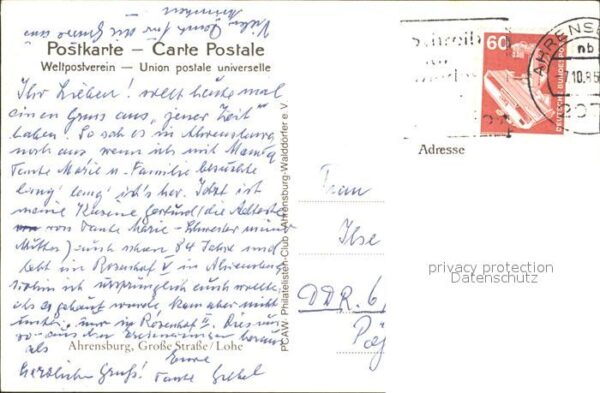 Vielen Dank für
Postkarte — Carte Postale
Weltpostverein — Union postale universelle
Ihr Lieben! wollt heute mal
einen Gruss aus „jener Zeit"
haben. So sah es in Ahrensburg
noch aus wenn ich mit Mama
Tante Marie u. Familie besuchte
lang' lang' ist's her. Jetzt ist
meine Kusine Gertrud (die Älteste
von Tante Marie - Schwester meiner
Mutter) auch schon 84 Jahre und
lebt im Rosenhof V in Ahrensburg
wohin ich ursprünglich auch wollte,
als es gebaut wurde, kam aber nicht
nur im Rosenhof II. Dies nur
so aus den Erinnerungen heraus
als
Ahrensburg, Große Straße/Lohe
Eure
Herzlichen Gruß! Tante
PCAW. Philatelisten-Club Ahrensburg-Walddörfer e.V.
60
DEUTSCHE BUNDESPOST
AHRENSB
nb
10.8.
Adresse
Frau
Ilse
DDR. 6
privacy protection
Datenschutz